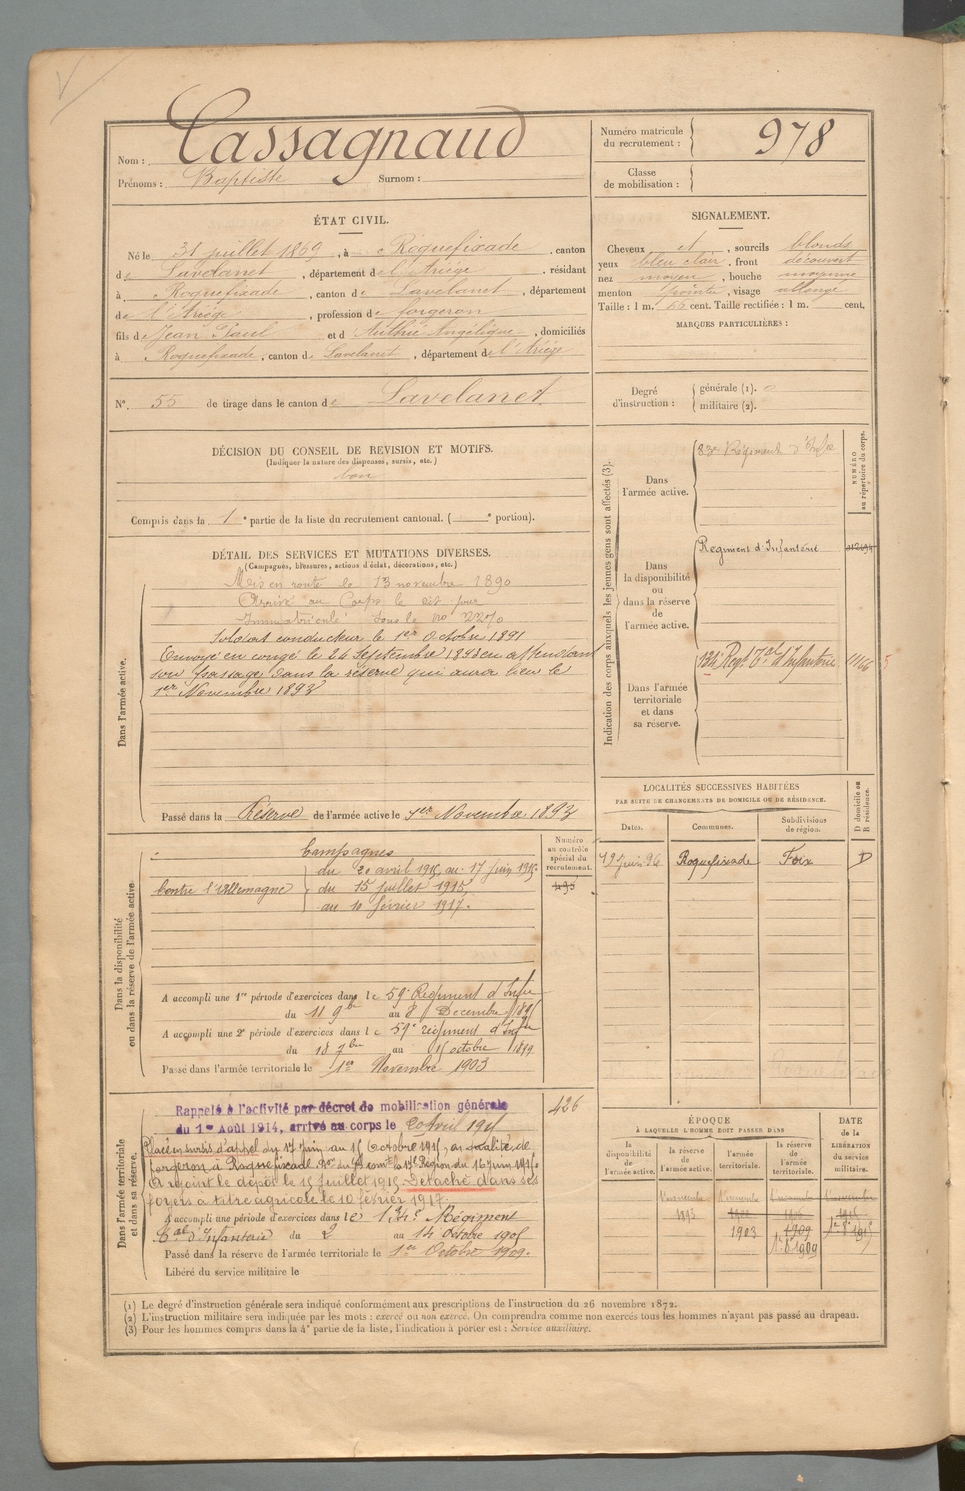 Nom : Cassagnaud
Prénoms : Baptiste Surnom :
Numéro matricule du recrutement : 978
Classe de mobilisation :
ÉTAT CIVIL.
Né le 31 juillet 1869, à Roquefixade, canton
de Lavelanet, département de l'Ariège, résidant
à Roquefixade, canton de Lavelanet, département
de l'Ariège, profession de forgeron
fils de Jean Paul et d Authié Angélique, domiciliés
à Roquefixade, canton de Lavelanet, département de l'Ariège
N° 55 de tirage dans le canton de Lavelanet
SIGNALEMENT.
Cheveux et, sourcils blonds
yeux bleu clair, front découvert
nez moyen, bouche moyenne
menton pointu, visage allongé
Taille : 1 m. 65 cent. Taille rectifiée : 1 m. cent.
MARQUES PARTICULIÈRES :
Degré d'instruction : générale (1).
militaire (2).
DÉCISION DU CONSEIL DE REVISION ET MOTIFS.
(Indiquer la nature des dispenses, sursis, etc.)
bon
Compris dans la 1e partie de la liste du recrutement cantonal. ( e portion).
DÉTAIL DES SERVICES ET MUTATIONS DIVERSES.
(Campagnes, blessures, actions d'éclat, décorations, etc.)
Dans l'armée active.
Mis en route le 13 novembre 1890
Arrivé au Corps le dit jour
Immatriculé sous le no 2270
Soldat conducteur le 1er Octobre 1891
Envoyé en congé le 24 Septembre 1893 en attendant
son passage dans la réserve qui aura lieu le
1er Novembre 1893
Passé dans la Réserve de l'armée active le 1er Novembre 1893
Indication des corps auxquels les jeunes gens sont affectés (3).
NUMÉRO au répertoire du corps.
Dans l'armée active.
83e Régiment d'Infie
Dans la disponibilité ou dans la réserve de l'armée active.
Régiment d'Infanterie
Dans l'armée territoriale et dans sa réserve.
134 Regt Tal d'Infanterie 11166
LOCALITÉS SUCCESSIVES HABITÉES
PAR SUITE DE CHANGEMENTS DE DOMICILE OU DE RÉSIDENCE.
Dates. Communes. Subdivisions de région. D domicile ou R résidence.
12 Juin 96 Roquefixade Foix D
Dans la disponibilité ou dans la réserve de l'armée active.
Numéro au contrôle spécial du recrutement.
Campagnes
du 20 avril 1915 au 17 juin 1915
Contre l'Allemagne du 15 juillet 1915
au 10 février 1917.
A accompli une 1re période d'exercices dans le 59e Régiment d'Infie
du 11 9bre au 8 Decembre 1895
A accompli une 2e période d'exercices dans le 59e régiment d'Infie
du 18 7bre au 15 octobre 1899
Passé dans l'armée territoriale le 1er Novembre 1903
Dans l'armée territoriale et dans sa réserve.
426
Rappelé à l'activité par décret de mobilisation générale
du 1er Août 1914, arrivé au corps le 20 Avril 1915
Placé en sursis d'appel du 17 Juin au 15 Octobre 1915, en qualité de
forgeron à Roquefixade Région du 16 Juin 1915
A rejoint le dépôt le 15 juillet 1915 Détaché dans ses
foyers à titre agricole le 10 février 1917.
A accompli une période d'exercices dans le 134e Régiment
Tal d'Infanterie du 2 au 14 Octobre 1905
Passé dans la réserve de l'armée territoriale le 1er Octobre 1909.
Libéré du service militaire le
ÉPOQUE
À LAQUELLE L'HOMME DOIT PASSER DANS
DATE de la LIBÉRATION du service militaire.
la disponibilité de l'armée active. la réserve de l'armée active. l'armée territoriale. la réserve de l'armée territoriale.
1893 1903 1909
1er 8bre 1909
(1) Le degré d'instruction générale sera indiqué conformément aux prescriptions de l'instruction du 26 novembre 1872.
(2) L'instruction militaire sera indiquée par les mots : exercé ou non exercé. On comprendra comme non exercés tous les hommes n'ayant pas passé au drapeau.
(3) Pour les hommes compris dans la 4e partie de la liste, l'indication à porter est : Service auxiliaire.